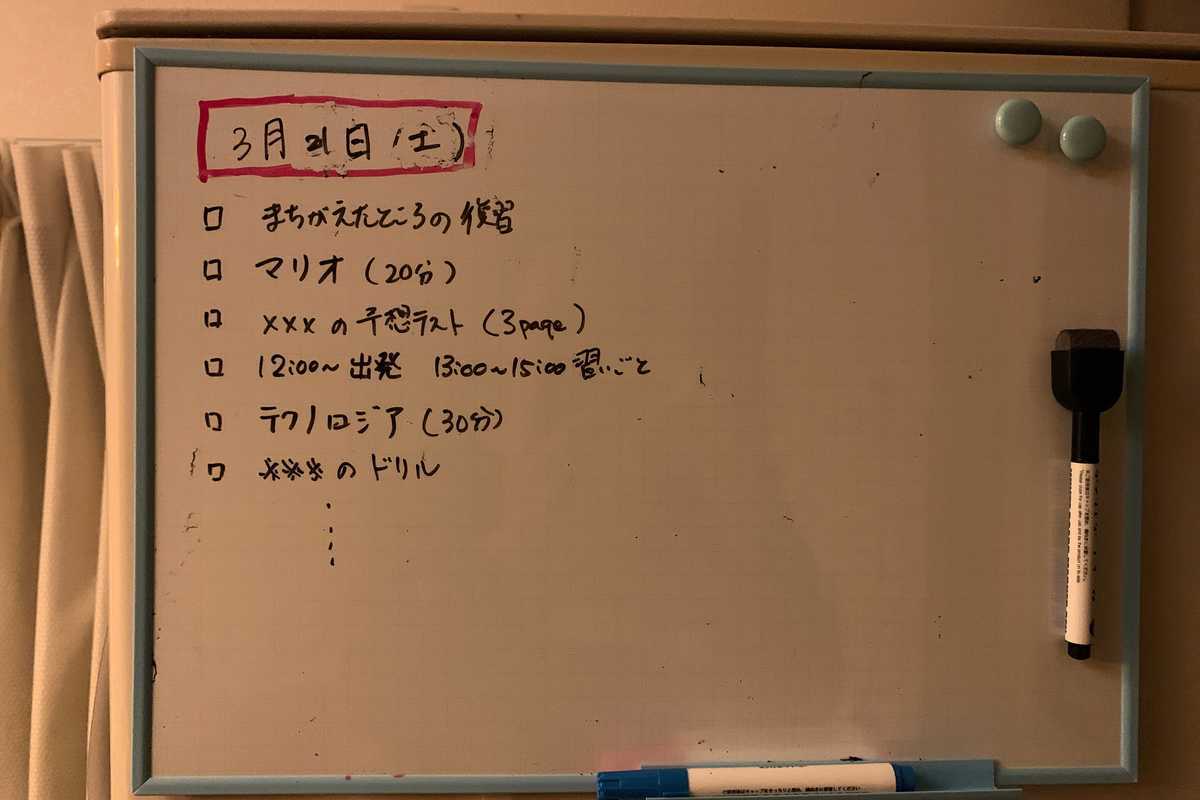 3月21日(土)
□ まちがえたところの復習
□ マリオ(20分)
□ xxxの予想テスト(3page)
□ 12:00~出発 13:00~15:00習いごと
□ テクノロジア(30分)
□ ※※※のドリル